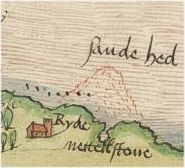 sande hed
Ryde
nettelstone